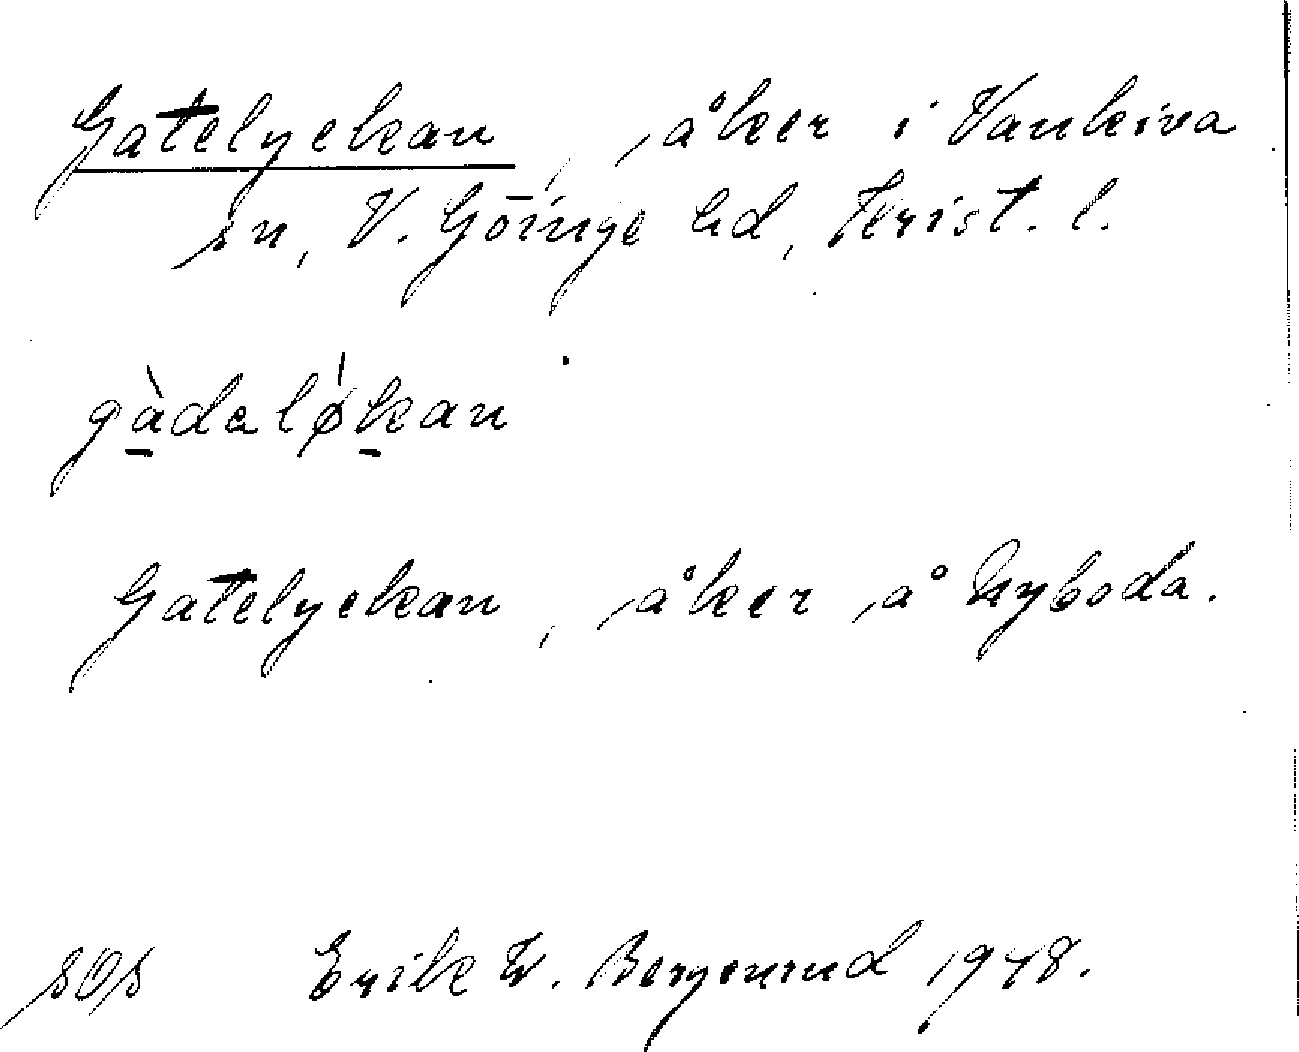 Gatelyckan, åker i Vankiva
sn, V. Göinge hd, Krist. l.
gàdaløkan
Gatelyckan, åker å Nyboda.
sOs Erik W. Bergstrand 1948.